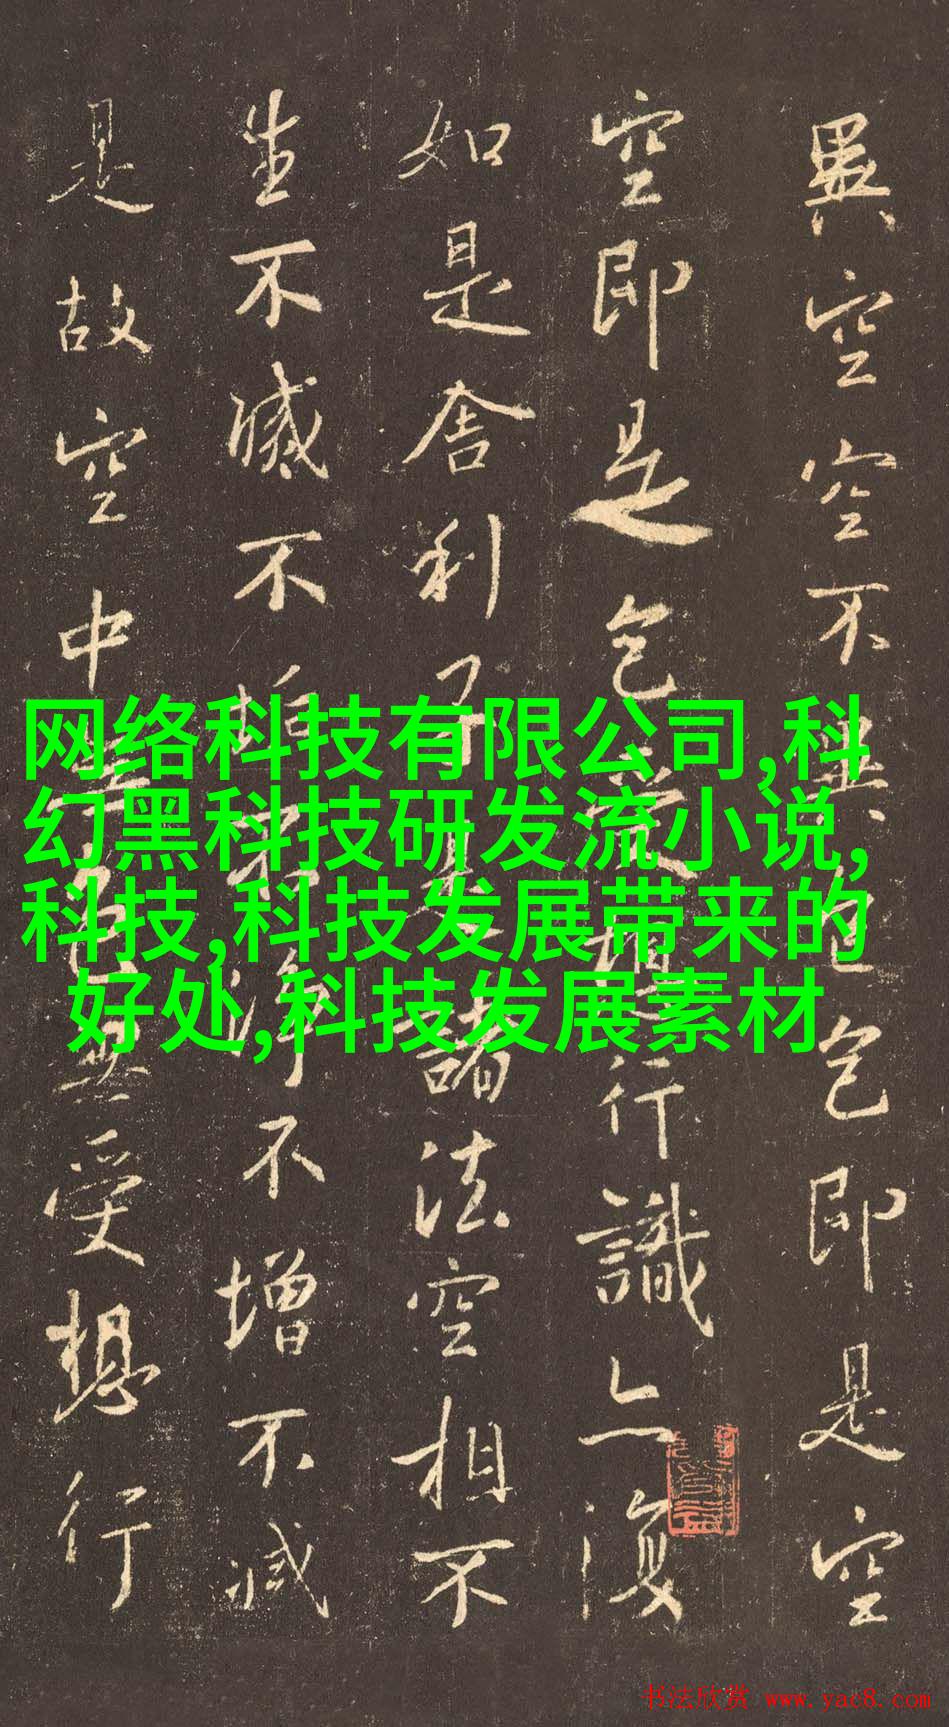 異空空不異色色即是空
空即是色受想行識亦復
如是舍利子是諸法空相不
生不滅不垢不淨不增不減
是故空中無色無受想行
网络科技有限公司,科
幻黑科技研发流小说,
科技,科技发展带来的
好处,科技发展素材
书法欣赏 www.yac8.com